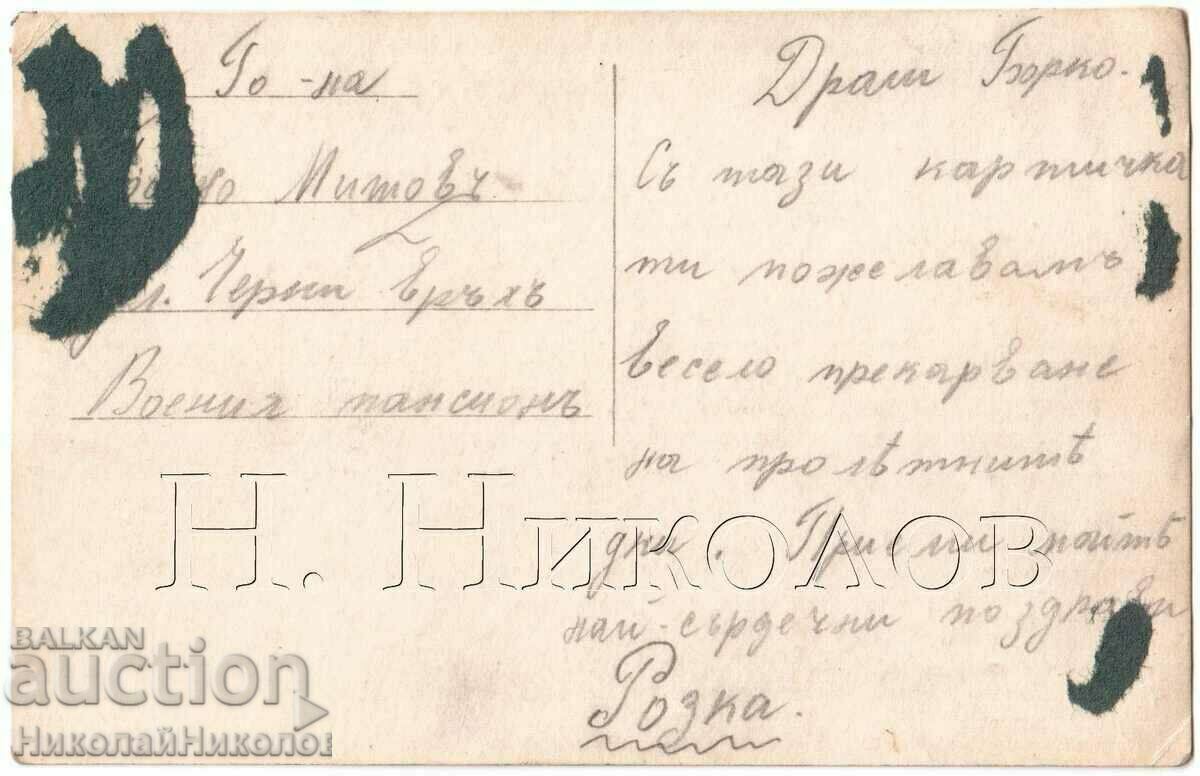 Го-на
Митовъ
Черни Връхъ
Военния пансионъ
Драги Борко.
Съ тази картичка
ти пожелавамъ
весело прекарване
на пролѣтнитѣ
дни. Приеми моитѣ
най-сърдечни поздрави
Розка.
Н. Николов
BALKAN
auction
НиколайНиколов